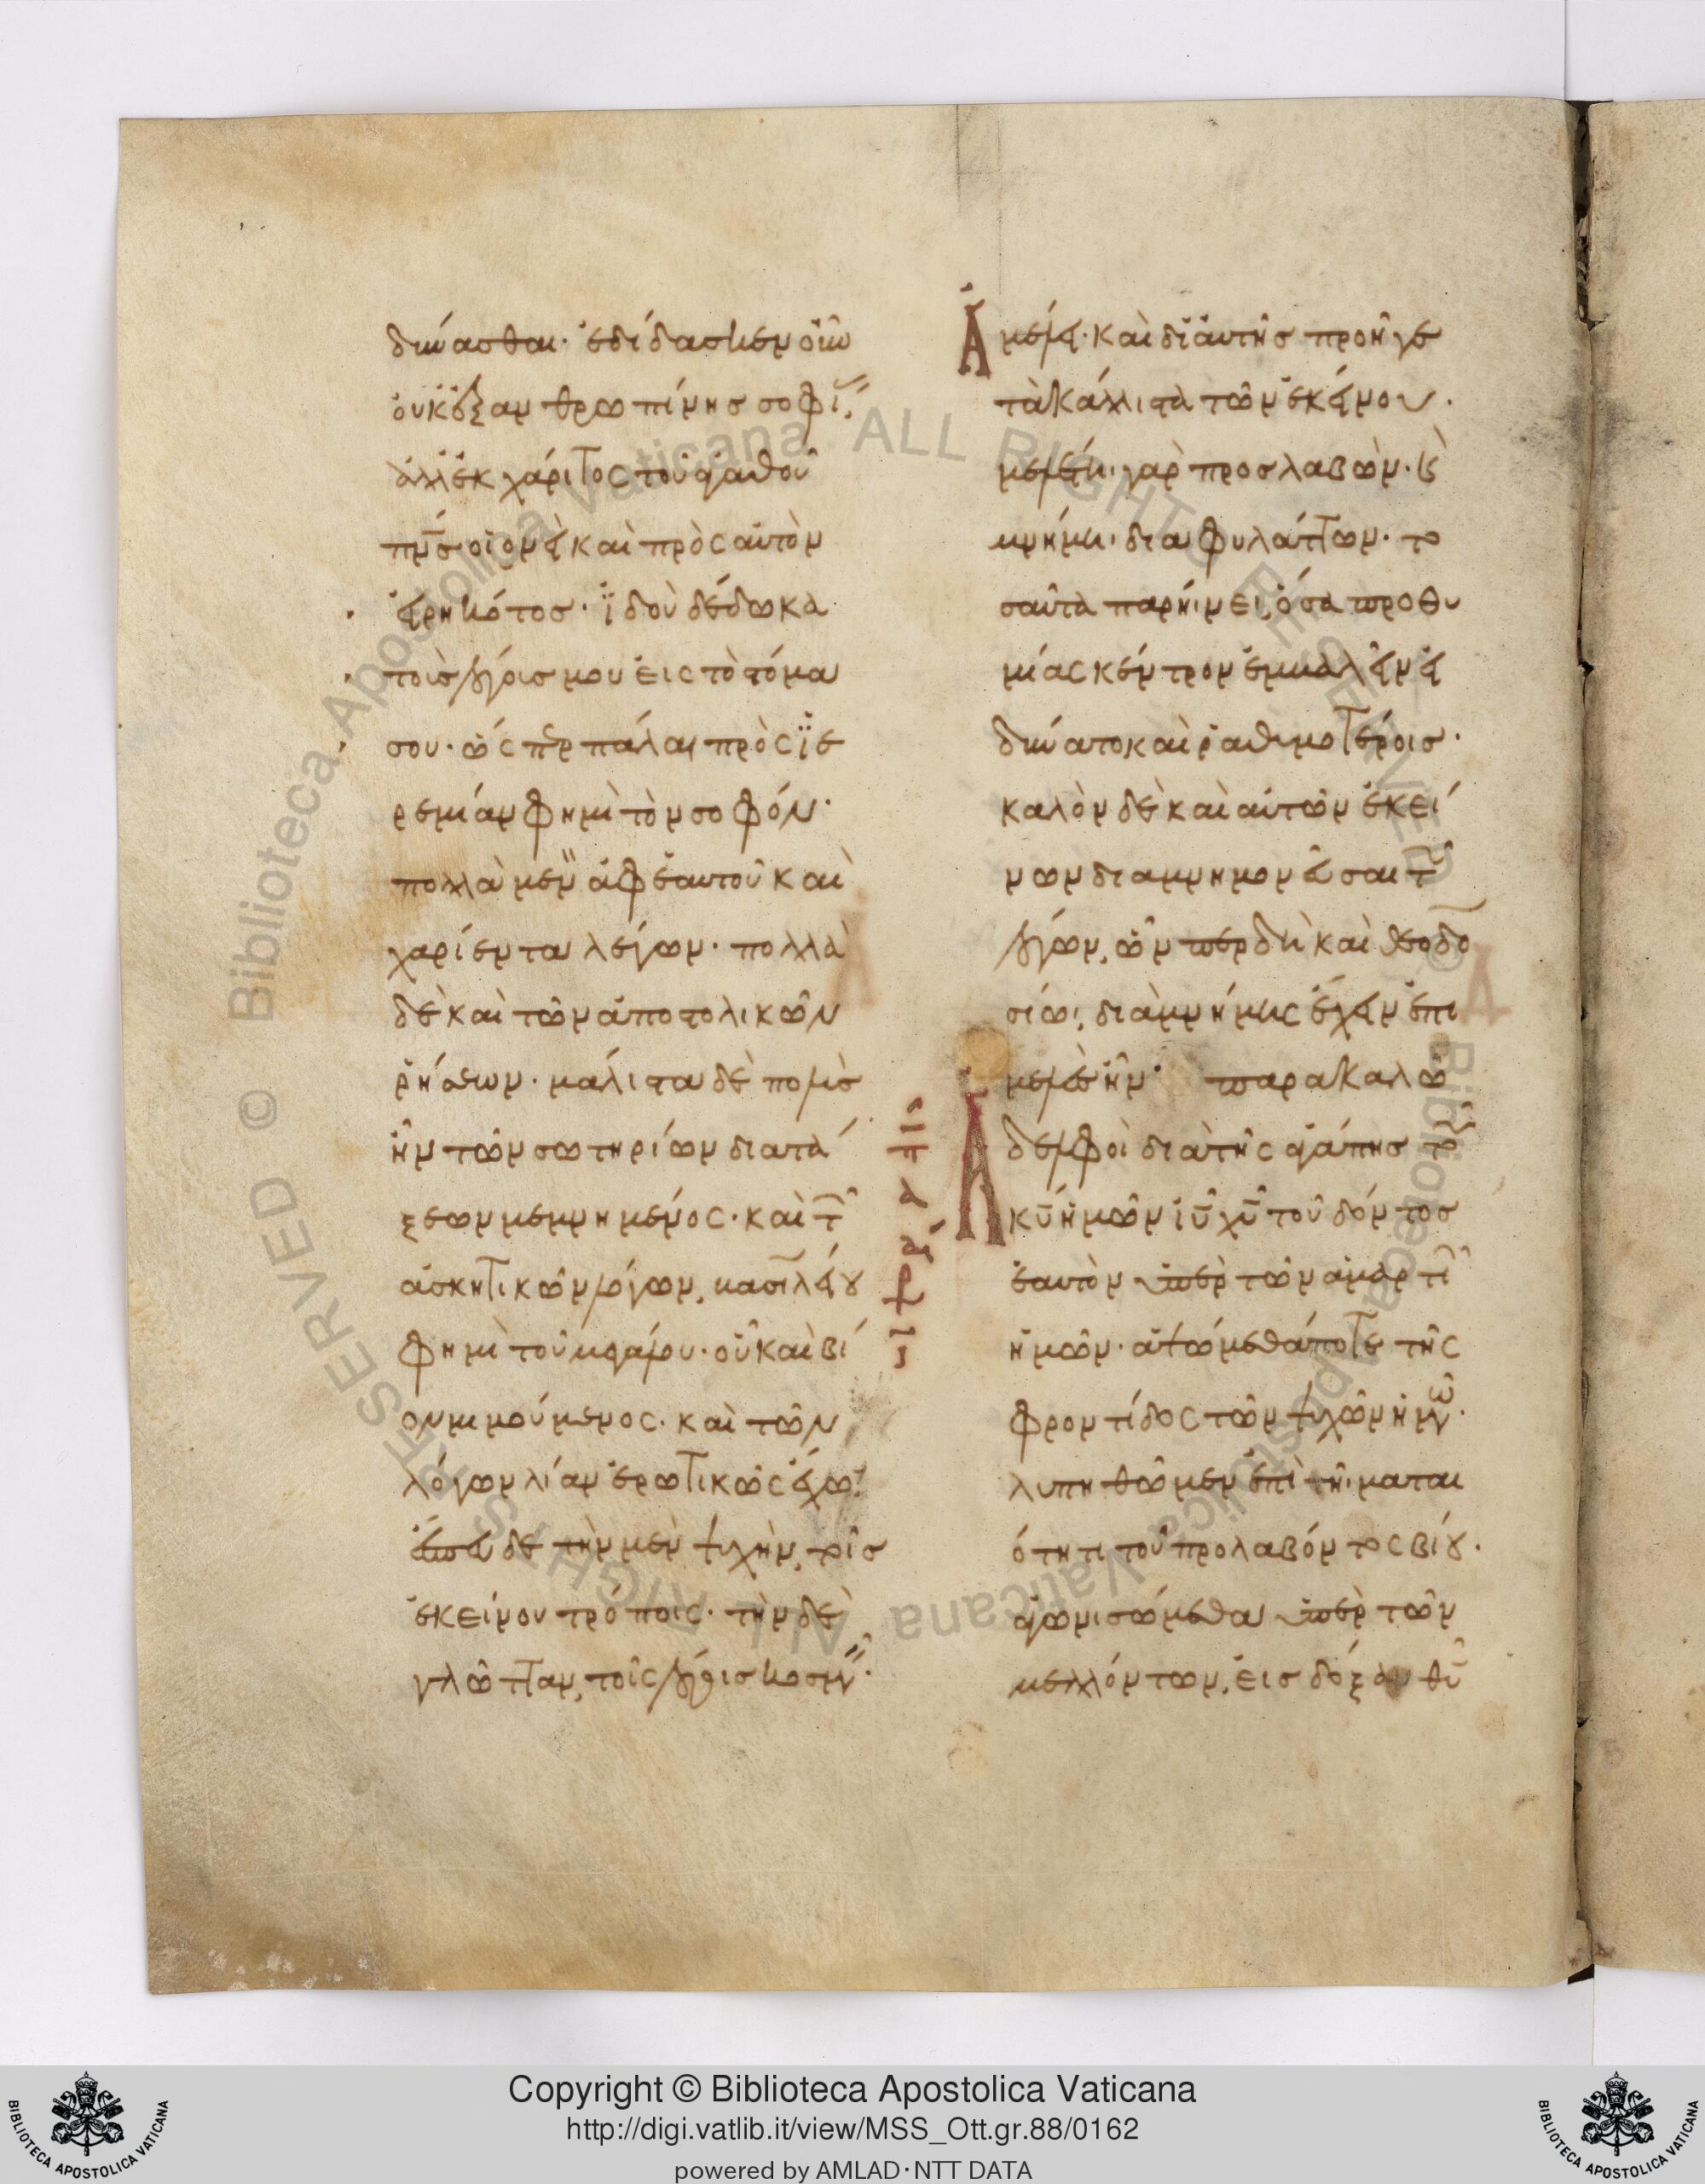 δύνασθαι· ἐδίδασκεν οὖν
οὐκ ἐξ ἀνθρωπίνης σοφί
ἀλλ' ἐκ χάριτος τοῦ ἀγαθοῦ
πνς· οἱονεὶ καὶ πρὸς αὐτὸν
εἰρηκότος· ἰδοὺ δέδωκα
τοὺς λόγους μου εἰς τὸ στόμα
σου· ὥσπερ πάλαι πρὸς ἱε
ρεμίαν φημὶ τὸν σοφόν·
πολλὰ μὲν ἀφ' ἑαυτοῦ καὶ
χαρίεντα λέγων· πολλὰ
δὲ καὶ τῶν ἀποστολικῶν
ῥήσεων· μάλιστα δὲ πολὺς
ἦν τῶν σωτηρίων διατά
ξεων μεμνημένος· καὶ τ
ἀσκητικῶν λόγων, βασιλείου
φημὶ τοῦ μεγάλου· οὗ καὶ βί
ον μιμούμενος· καὶ τῶν
λόγων λίαν ἐρωτικῶς ἔχω
δε τὴν μὲν ψυχὴν, τοῖς
ἐκείνου τρόποις· τὴν δὲ
γλῶτταν, τοῖς λόγοις κοσμῶν·
Ἀνέλει· καὶ δι' αὐτῆς προῆγε
τὰ κάλλιστα τῶν ἐκείνου·
μελέτη γὰρ προσλαβὼν· καὶ
μνήμη διαφυλάττων· το
σαῦτα παρήινει, ὅσα προθυ
μίας κέντρον ἐμβαλεῖν εἰ
δύνατο καὶ ῥαθυμοτέροις·
καλὸν δὲ καὶ αὐτῶν ἐκεί
νων διαμνημονεῦσαι τ
λόγων, ὧνπερ δὴ καὶ θεοδο
σίωι, διὰ μνήμης ἔχειν ἐπι
μελὲς ἦν· παρακαλῶ
Ἀδελφοὶ διὰ τῆς ἀγάπης τοῦ
κυ ἡμῶν ιυ χυ τοῦ δόντος
ἑαυτὸν ὑπὲρ τῶν ἁμαρτι
ἡμῶν· ἁψώμεθά ποτε τῆς
φροντίδος τῶν ψυχῶν ἡμῶν·
λυπηθῶμεν ἐπὶ τῆι μαται
ότητι τοῦ προλαβόντος βίου·
ἀγωνισώμεθα ὑπὲρ τῶν
μελλόντων, εἰς δόξαν θυ
Copyright © Biblioteca Apostolica Vaticana
http://digi.vatlib.it/view/MSS_Ott.gr.88/0162
powered by AMLAD·NTT DATA
BIBLIOTECA APOSTOLICA VATICANA
BIBLIOTECA APOSTOLICA VATICANA